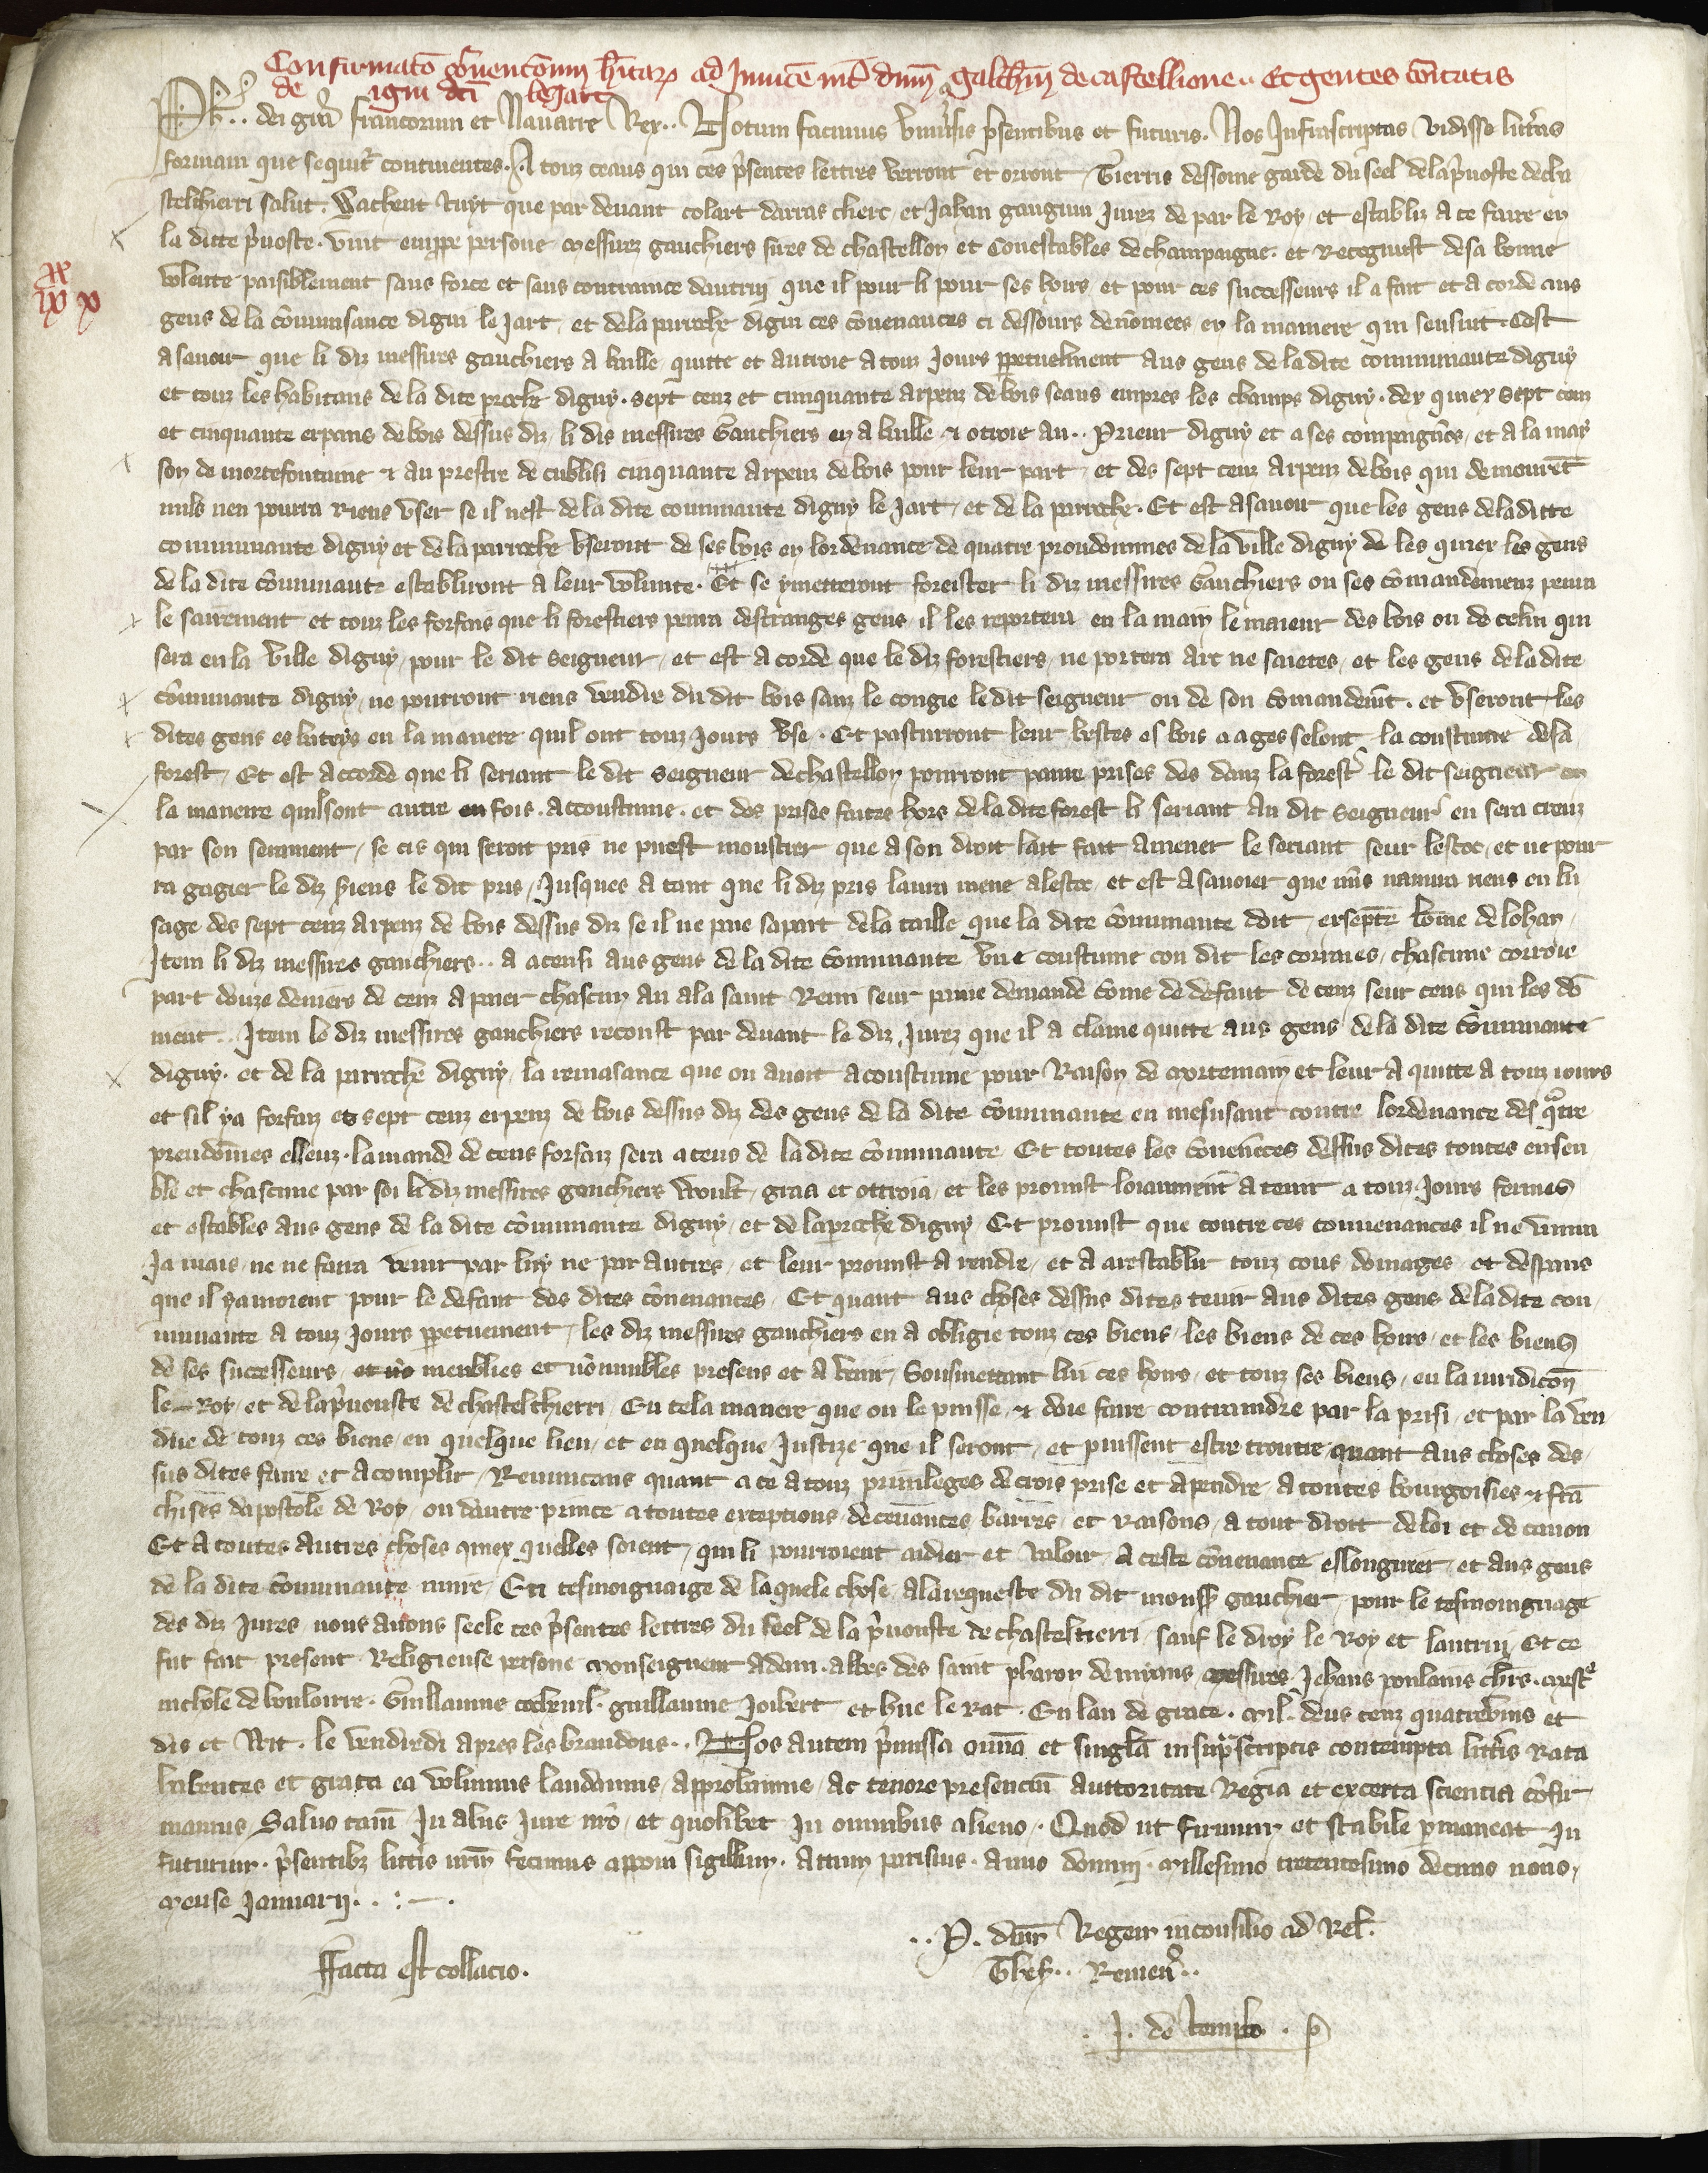 Confirmato gvencõnum hitaꝝ ad Jnuicẽ int̃ dnm̃ galch̃m de castellione .. Et gentes cõitatis
de igni dc̃i le Jart
Ph̃s .. dei gr̃a francorum et Nauarre Rex .. Notum facimus vniũsis p̃sentibus et futuris . Nos Infrascriptas vidisse litt̃as
formam que sequit̃ continentes . A touz ceaus qui ces p̃sentes lettres verront et orront Tierris dessome garde du seel de la p̃uoste de cha
stelthierri salut . Sachent tuyt que par deuant colart darras clerc et Jahan gangnin Jurez de par le Roy et establiz a ce faire en
la ditte p̃uoste . vint en ppre persone messires gauchiers sires de chastellon et Conestables de champaigne . et Recognust de sa bonne
volente paisiblement sans force et sans contrainte dautrui que il pour li pour ses hoirs et pour ces successeurs il a fait et acorde aus
gens de la cõmunsance digni le Jart et de la parroche digni ces cõuenances ci dessours denõmees en la maniere qui sensiut . Cest
a sauoir que li diz messires gauchiers a baille quitte et autroie a touz Jours ppetuelment aus gens de la dite communaute diguy
et touz les habitans de la dite proche diguy . sept cenz et cinquante arpenz de bois seans empres les champs diguy . des quiex sept cenz
et cinquante erpans de bois dessus diz li dis messires Gauchiers en a baille & otroie au .. Prieur diguy et a ses compaignõs et a la mai
son de mortefontaine & au prestre de cublisi cinquante arpenz de bois pour leur part et des sept cenz arpenz de bois qui demouret̃
nuls nen pourra riens vser se il nest de la dite communaute diguy le Jart et de la parroche . Et est asauoir que les gens de la ditte
communaute diguy et de la parroche vseront de ses bois en lordenance de quatre proudommes de la ville diguy de les quiex les gens
de la dite cõmunaute establiront a leur volunte . Et se ymetteront foreister li diz messires Gauchiers ou ses cõmandemenz penra
le sairement et touz les forfais que li forestiers penra destranges gens il les reportera en la main le maieur des bois ou de celui qui
sera en la ville diguy pour le dit seigneur et est acorde que le diz forestiers ne portera arc ne saietes et les gens de la dite
cõmunaute diguy ne pourront riens vendre du dit bois sanz le congie le dit seigneur ou de son cõmandem̃t . et vseront les
dites gens es buteys en la maniere quil ont touz Jours vse . Et pasturront leur bestes es bois a ages selont la coustume de la
forest Et est accorde que li seriant le dit seigneur de chastellon pourront panre prises des danz la forest le dit seigneur en
la maneire quilsont autre en fois . accoustume . et des prises faites hors de la dite forest li seriant au dit seigneur en sera creuz
par son serement se cis qui seroit pris ne puest moustrer que a son droit lait fait amener le seriant seur lestoc et ne pour
ra gagier le diz siens le dit pris Jusques a tant que li diz pris laura mene alestoc et est asauoier que nũs naiura riens en lu
sage des sept cenz arpenz de bois dessus diz se il ne paie sapart de la taille que la dite cõmunaute doit exsepte home de lohan
Item li diz messires gauchiers .. a acensi aus gens de la dite Communaute vne coustume con dit les corraies chascune corroie
part douze deniers de cenz a paier chascun an ala saint Remi seur paine demande cõme de defaut de cenz seur cens qui les do
uient .. Item le diz messires gauchiers reconst par deuant le diz Jurez que il a clame quitte aus gens de la dite Communaute
diguy . et de la parroche diguy la renasance que on auoit acoustume pour Raison de mortemain et leur a quitte a touz iours
et sil ya forfaiz es sept cenz erpenz de bois dessus diz des gens de la dite cõmunaute en mesusant contre lordenance des q̃tre
preudõmes esleuz . lamande de ceus forfaiz sera aceus de la dite cõmunaute Et toutes les Couenẽces dessus dites toutes ensen
ble et chascune par soi li diz messires gauchiers voult graa et ottroia et les promist loiaumẽnt a tenir a touz Jours fermes
et estables aus gens de la dite cõmunaute diguy et de laproche diguy Et promist que contre ces conuenances il ne vinra
Ja mais ne ne fara venir par luy ne par autres et leur promist a rendre et a arestablir touz cous domages et despans
que il yamoient pour le defaut des dites cõuenances Et quant aus choses dessus dites tenir aus dites gens de la dite con
munaute a touz Jours ppetuement les diz messires gauchiers en a obligie touz ces biens les biens de ces hoirs et les biens
de ses successeurs meubles et nõmubles presens et a venir Sousmettant lui ces hoirs et touz ses biens en la iuridicõn
le Roy et de lap̃uouste de chastelthierri En tela manere que on le puisse & doie faire contraindre par la prisi et par la ven
due de touz ces biens en quelque lieu et en quelque Justize que il seront et puissent estre trouue quant aus choses des
sus dites faire et acomplir Renuncans quant a ce a touz priuileges de crois prise et apendre a toutes bourgoisies & frã
chises dapostole de Roy ou dautre prince a toutes exceptions deceuãnces barres et Raisons a tout droit de loi et de canon
Et a toutes autres choses quiex quelles soient qui li pourroient aidier et valoir a ceste cõuenance eslonguier et aus gens
de la dite Communaute nuire En tesmoignaige de laquele chose alarequeste du dit monss gauchier pour le tesmoingnage
des diz Jures nous auons seele ces p̃sentes lettres du seel de la p̃uouste de chasteltierri sauf le droy le Roy et lautrui Et ce
fut fait present Religieuse persone monseigneur adam . abbes des saint pharon demiaus messires Jehans poulains ch̃rs . mest̃
nichole de bouloirre . Guillaume cochenil . guillaume Joibert et hue le Rat . En lan de grace . mil . deus cenz quatrevins et
dis et wit . le vendredi apres les brandons .. Nos autem p̃missa omnia et singl̃a in sup̃scriptis contempta litt̃is Rata
habentes et grata ea volumus laudamus approbamus ac tenore presenciũ auttoritate Regia et excerta sciencia cõfir
mamus Saluo tam̃ In aliis Jure nrõ et quolibet In omnibus alieno . Quod ut firmum et stabile pmaneat In
futurum . p̃sentibz litt̃is nrm̃ fecimus apponi sigillum . Attum parisius . anno domini . millesimo trecentesimo decimo nono
mense Januarij . . : — .
.. P . dnm̃ Regem in consilio ad Rel̃.
ffacta est collacio .
Thes̃ .. Remen̾ ..
. J . de templo .